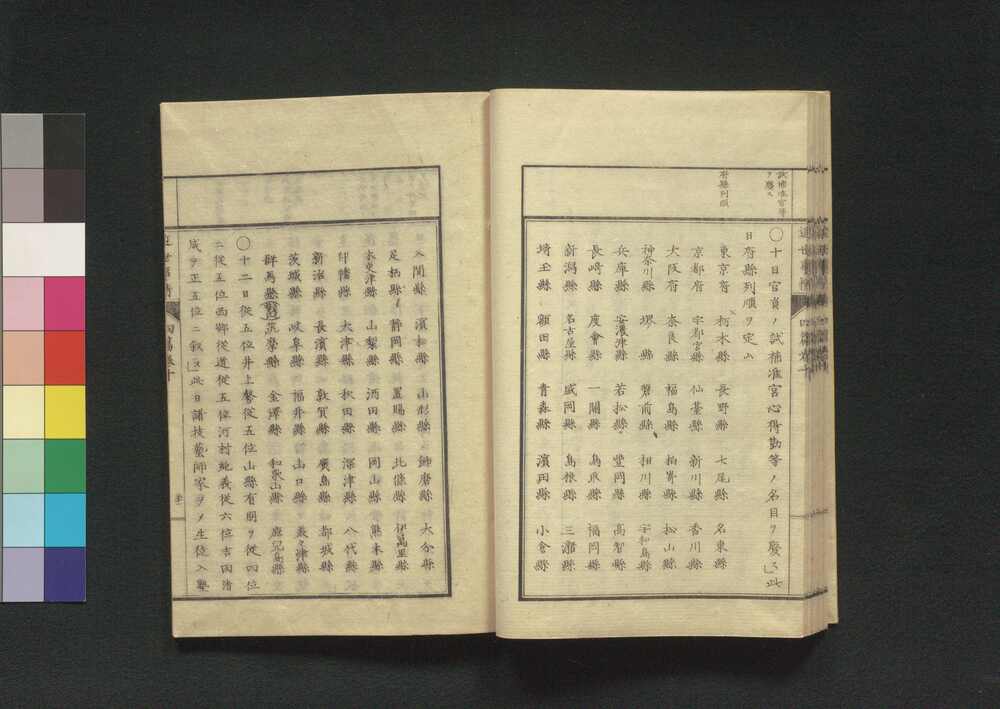 試補准官等
ヲ廢ス
府縣列順
〇十日官員ノ試補准官心得勤等ノ名目ヲ廢ス此
日府縣列順ヲ定ム
東京府 栃木縣 長野縣 七尾縣 名東縣
京都府 宇都宮縣 仙臺縣 新川縣 香川縣
大阪府 奈良縣 福島縣 柏嵜縣 松山縣
神奈川縣 堺縣 磐前縣 相川縣 宇和島縣
兵庫縣 安濃津縣 若松縣 豐岡縣 高智縣
長崎縣 度會縣 一關縣 鳥取縣 福岡縣
新潟縣 名古屋縣 盛岡縣 島根縣 三瀦縣
埼玉縣 額田縣 青森縣 濱田縣 小倉縣
入間縣 濱松縣 山形縣 飾磨縣 大分縣
足柄縣 靜岡縣 置賜縣 北條縣 伊萬里縣
木更津縣 山梨縣 酒田縣 岡山縣 熊本縣
印幡縣 大津縣 秋田縣 深津縣 八代縣
新治縣 長濱縣 敦賀縣 廣島縣 都城縣
茨城縣 岐阜縣 福井縣 山口縣 美々津縣
群馬縣 筑摩縣 金澤縣 和歌山縣 鹿兒島縣
〇十二日從五位井上馨從五位山縣有朋ヲ從四位
ニ從五位西鄕從道從五位河村純義從六位吉田清
成ヲ正五位ニ敘ス此日諸技藝師家ヲ〆生徒入塾
四篇卷十